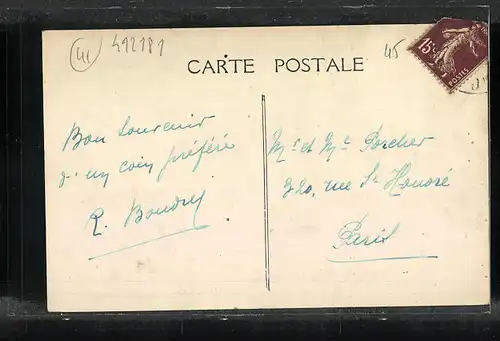 41
412181
45
CARTE POSTALE
15c
POSTES
Bon souvenir
d'un coin préféré
R. Boudry
Mr et Me Porcher
220, rue St Honoré
Paris